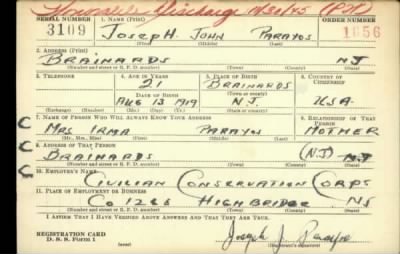 Honorable Discharge 10/30/45 (PR)
SERIAL NUMBER 1. NAME (Print) ORDER NUMBER
3109 JOSEPH JOHN PARAYOS 1656
2. ADDRESS (Print)
BRAINARDS NJ
(Number and street or R. F. D. number) (Town) (County) (State)
3. TELEPHONE 4. AGE IN YEARS 5. PLACE OF BIRTH 6. COUNTRY OF CITIZENSHIP
21 BRAINARDS
DATE OF BIRTH (Town or county)
AUG 13 1919 N.J. USA
(Exchange) (Number) (Mo.) (Day) (Yr.) (State or country)
7. NAME OF PERSON WHO WILL ALWAYS KNOW YOUR ADDRESS 8. RELATIONSHIP OF THAT PERSON
MRS IRMA PARAYOS MOTHER
(Mr., Mrs., Miss) (First) (Middle) (Last)
9. ADDRESS OF THAT PERSON
BRAINARDS (NJ)
(Number and street or R. F. D. number) (Town) (County) (State)
10. EMPLOYER'S NAME
CIVILIAN CONSERVATION CORPS
11. PLACE OF EMPLOYMENT OR BUSINESS
Co 1266 HIGH BRIDGE NJ
(Number and street or R. F. D. number) (Town) (County) (State)
I AFFIRM THAT I HAVE VERIFIED ABOVE ANSWERS AND THAT THEY ARE TRUE.
REGISTRATION CARD
D. S. S. Form 1
Joseph J. Parayos
(Registrant's signature)
C
C
C